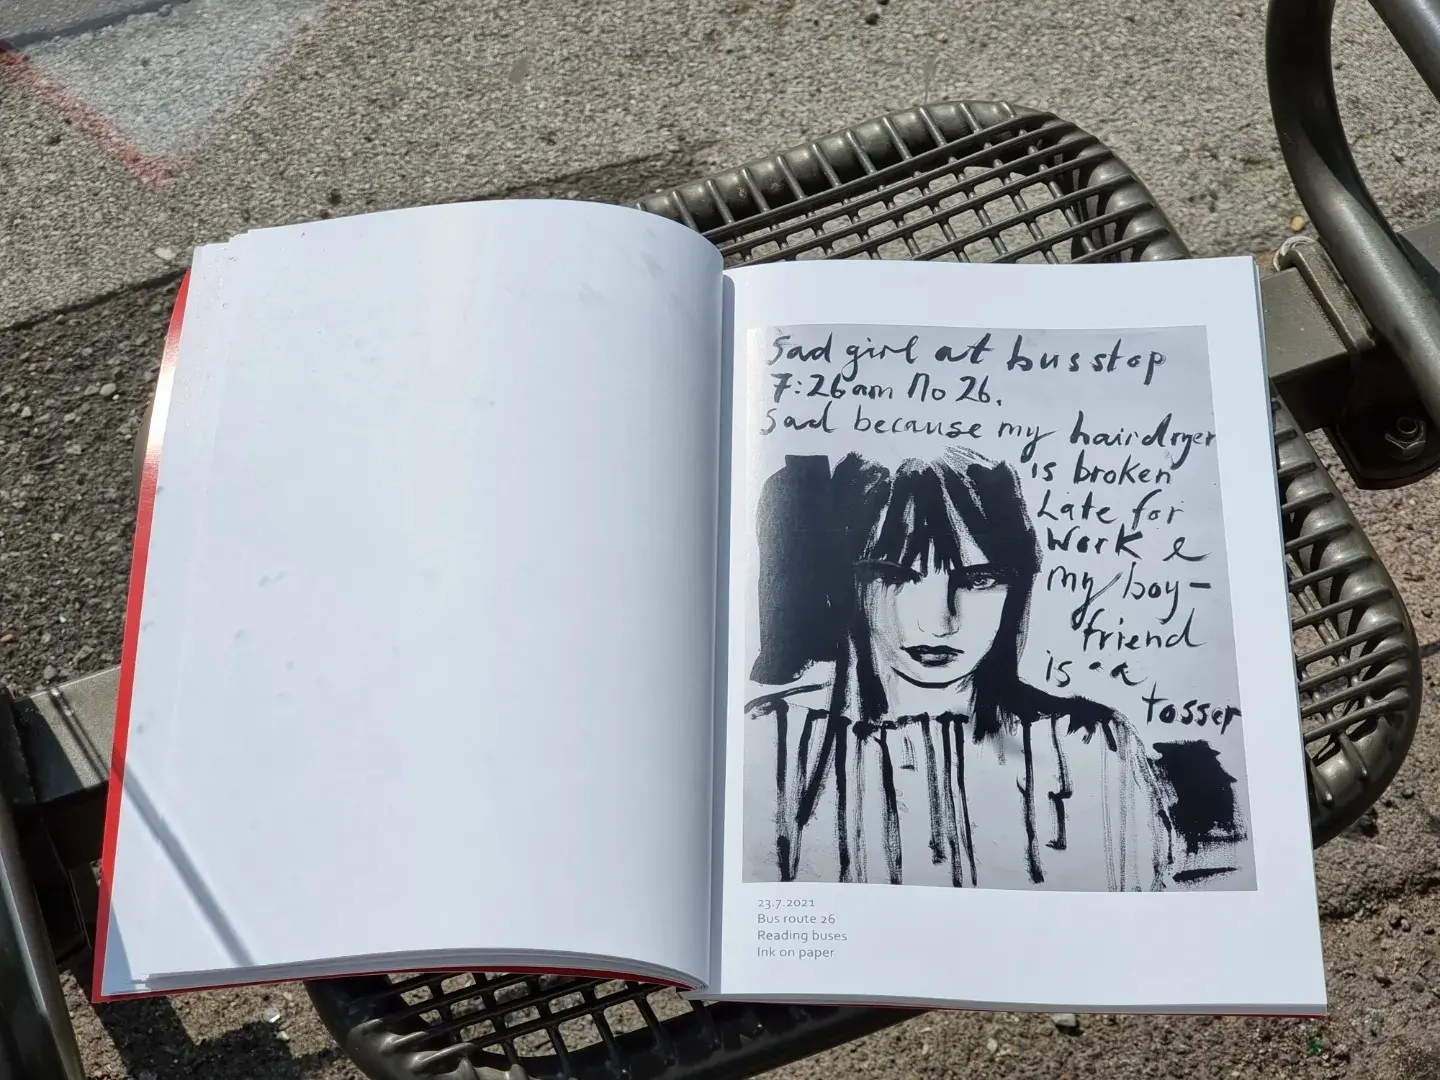 Sad girl at bus stop
7:26am No 26.
Sad because my hairdryer
is broken
Late for
Work &
my boy-
friend
is a
tosser
23.7.2021
Bus route 26
Reading buses
Ink on paper